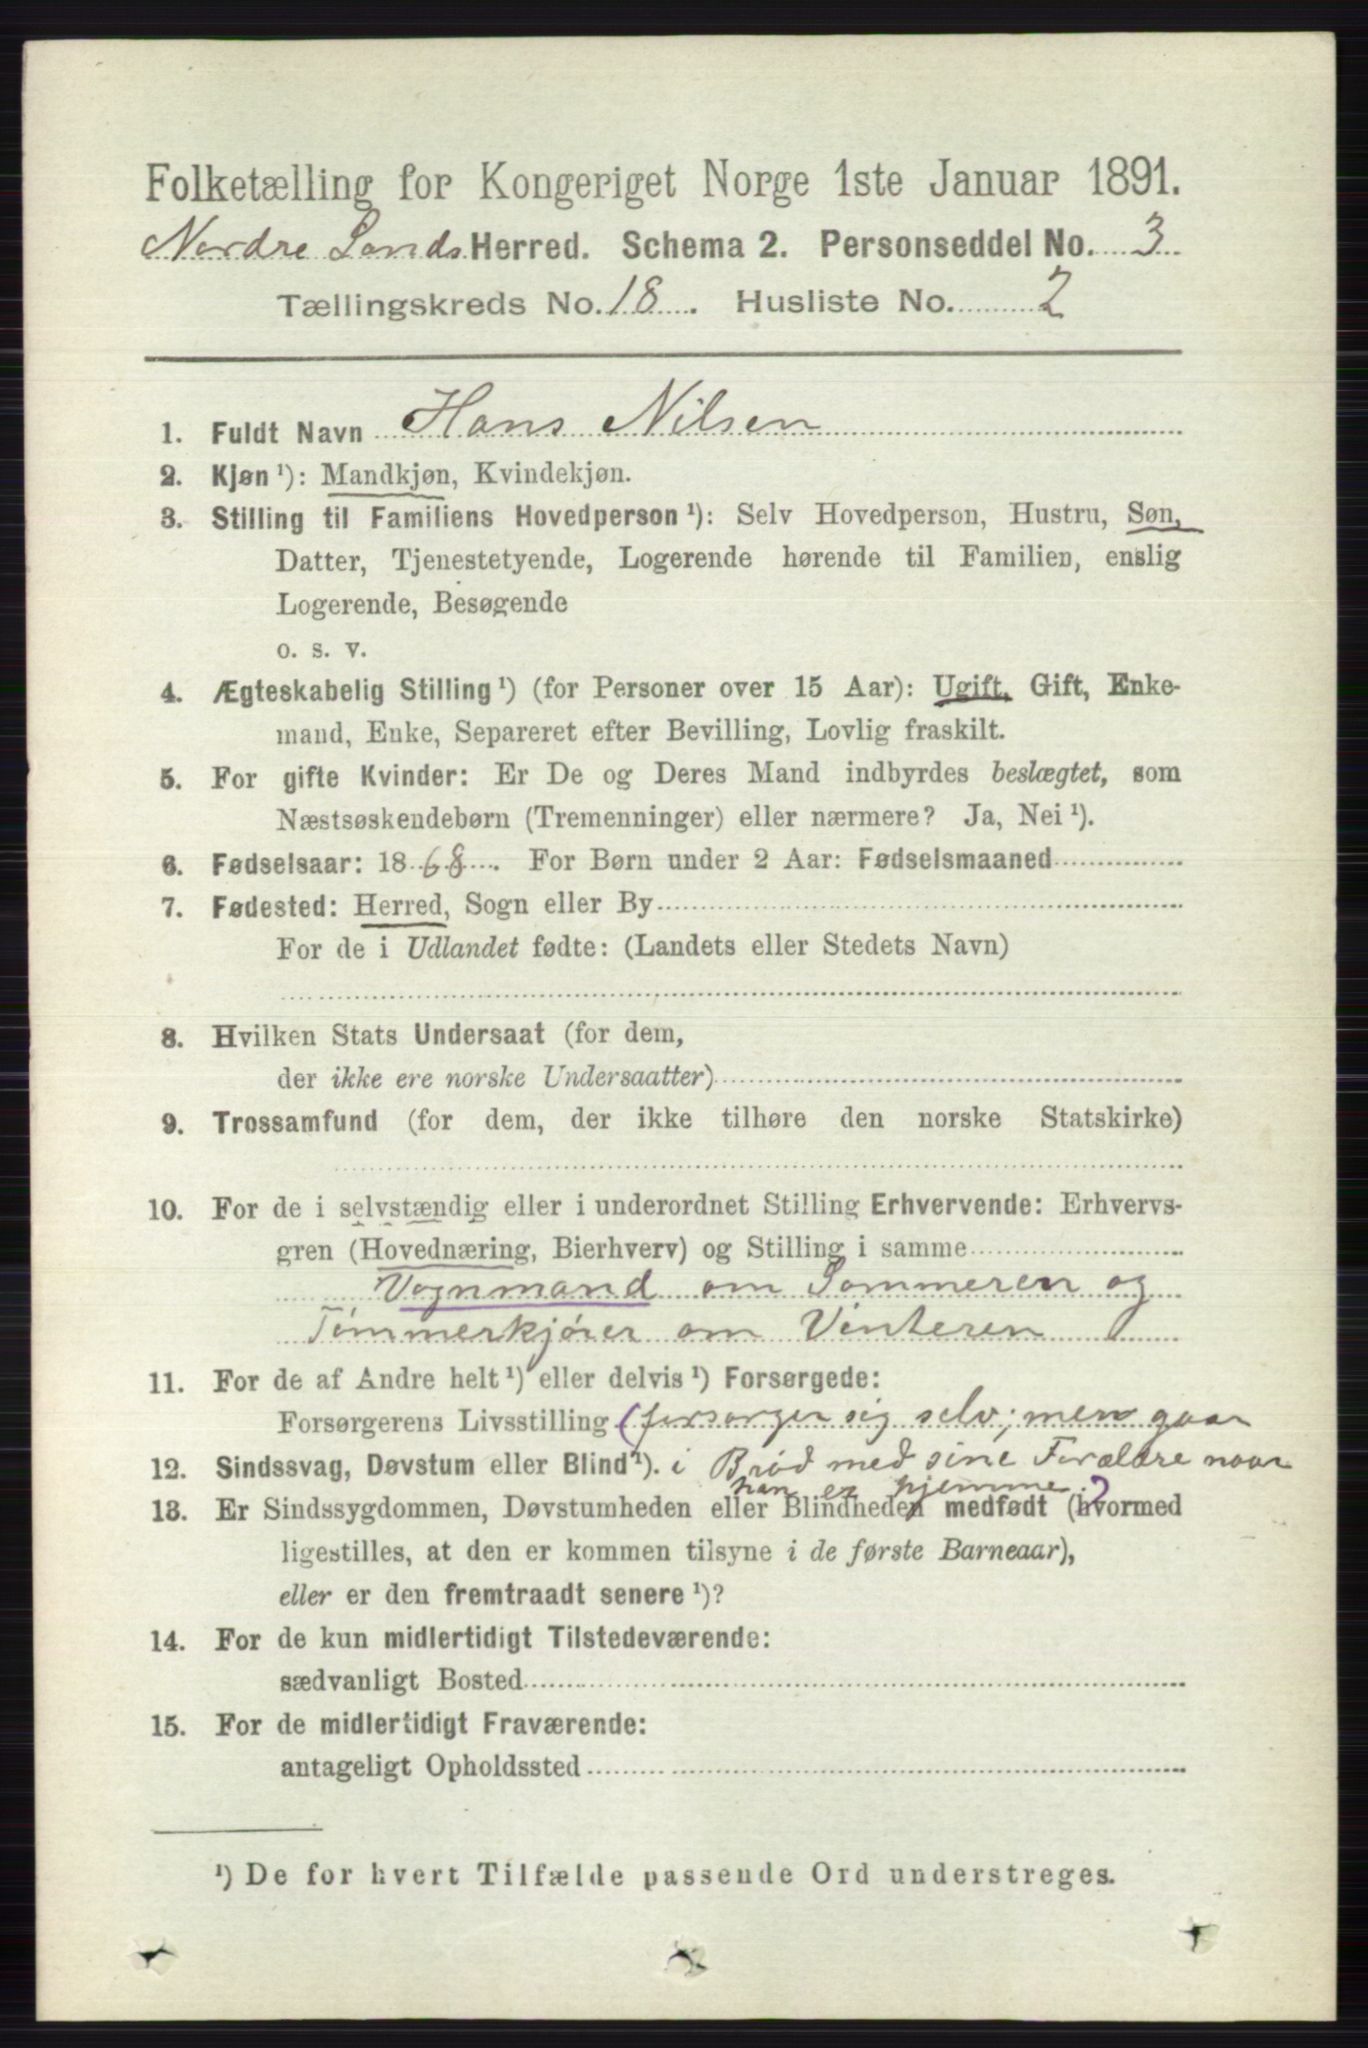 Folketælling for Kongeriget Norge 1ste Januar 1891.
Nordre Lands Herred. Schema 2. Personseddel No. 3
Tællingskreds No. 18. Husliste No. 2
1. Fuldt Navn Hans Nilsen
2. Kjøn ¹): Mandkjøn, Kvindekjøn.
3. Stilling til Familiens Hovedperson ¹): Selv Hovedperson, Hustru, Søn,
Datter, Tjenestetyende, Logerende hørende til Familien, enslig
Logerende, Besøgende
o. s. v.
4. Ægteskabelig Stilling ¹) (for Personer over 15 Aar): Ugift, Gift, Enke-
mand, Enke, Separeret efter Bevilling, Lovlig fraskilt.
5. For gifte Kvinder: Er De og Deres Mand indbyrdes beslægtet, som
Næstsøskendebørn (Tremenninger) eller nærmere? Ja, Nei ¹).
6. Fødselsaar: 1868. For Børn under 2 Aar: Fødselsmaaned
7. Fødested: Herred, Sogn eller By
For de i Udlandet fødte: (Landets eller Stedets Navn)
8. Hvilken Stats Undersaat (for dem,
der ikke ere norske Undersaatter)
9. Trossamfund (for dem, der ikke tilhøre den norske Statskirke)
10. For de i selvstændig eller i underordnet Stilling Erhvervende: Erhvervs-
gren (Hovednæring, Bierhverv) og Stilling i samme
Vognmand om Sommeren og
Tømmerkjører om Vinteren
11. For de af Andre helt ¹) eller delvis ¹) Forsørgede:
Forsørgerens Livsstilling (forsørger sig selv; men gaar
12. Sindssvag, Døvstum eller Blind ¹). i Brød med sine Forældre naar
han er hjemme?
13. Er Sindssygdommen, Døvstumheden eller Blindheden medfødt (hvormed
ligestilles, at den er kommen tilsyne i de første Barneaar),
eller er den fremtraadt senere ¹)?
14. For de kun midlertidigt Tilstedeværende:
sædvanligt Bosted
15. For de midlertidigt Fraværende:
antageligt Opholdssted
¹) De for hvert Tilfælde passende Ord understreges.